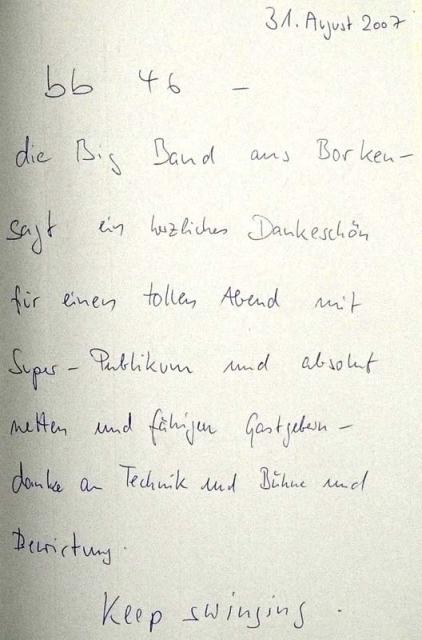 31. August 2007
bb 46 –
die Big Band aus Borken –
sagt ein herzliches Dankeschön
für einen tollen Abend mit
Super-Publikum und absolut
netten und fähigen Gastgebern –
danke an Technik und Bühne und
Bewirtung.
Keep swinging.